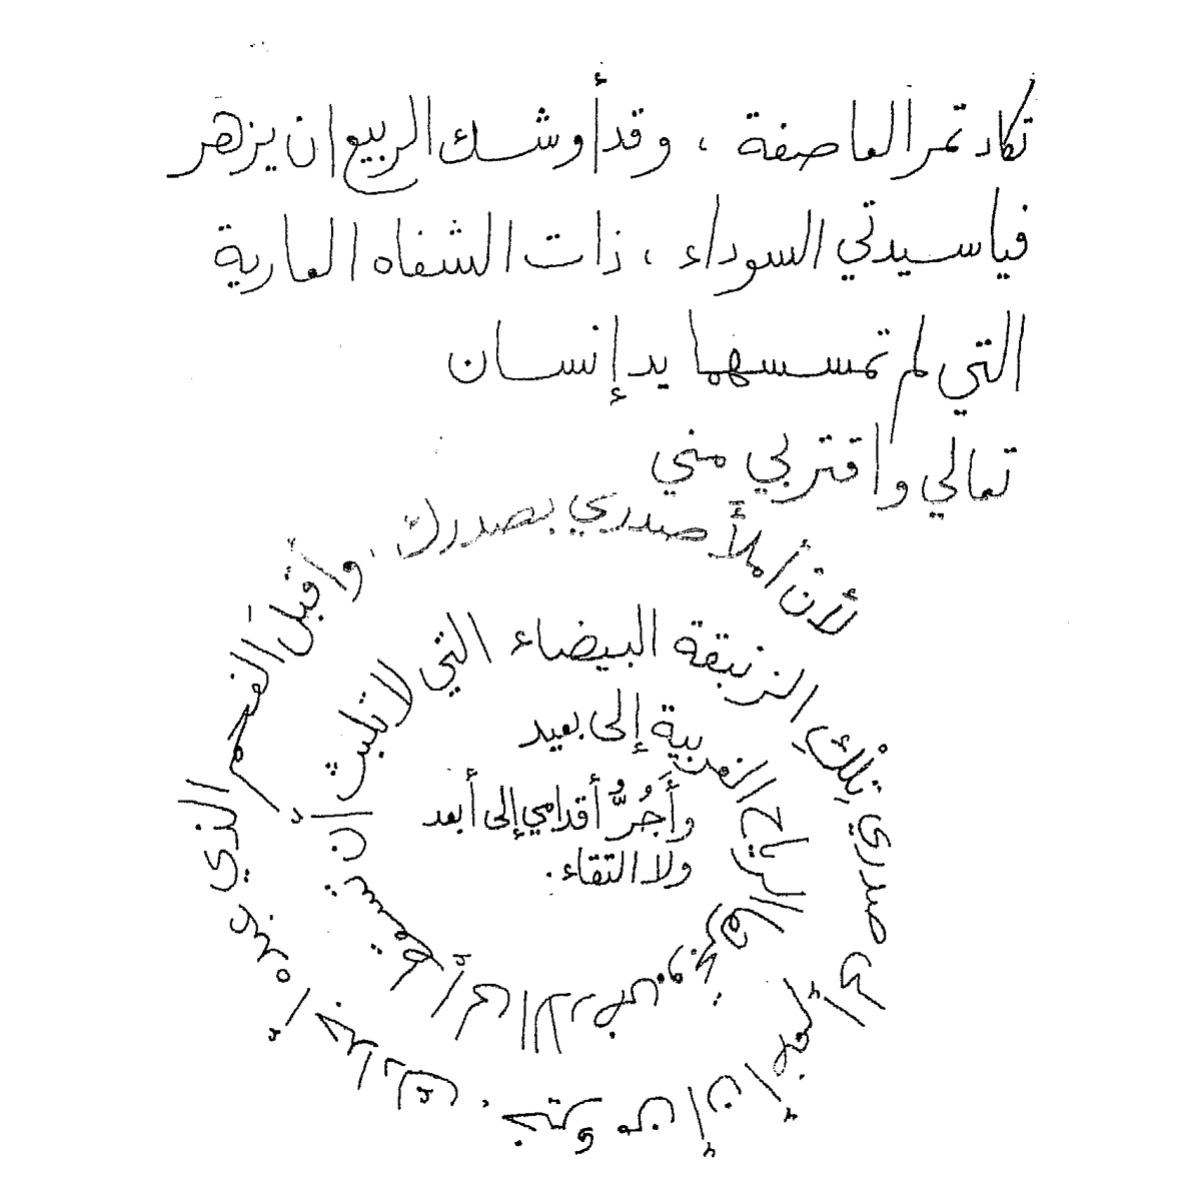 تكاد تمر العاصفة ، وقد أوشك الربيع ان يزهر
فيا سيدتي السوداء ، ذات الشفاه العارية
التي لم تمسسها يد إنسان
تعالي واقتربي مني
لأن أملأ صدري بصدرك ، وأقبّلَ الفحم الذي غبره أجدادك ، خير من أن أضم إلى صدري تلْكِ الزنبقة البيضاء التي لا تلبث ان تسقط الأرض وتجرفها الرياح الغربية إلى بعيد
وأَجُرُّ أقدامي إلى أبعد
ولا التقاء .